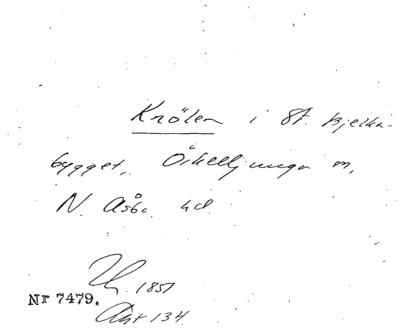 Krölen i St. Bjelka-
bygget, Örkelljunga
N. Åsbo hd.
1851
Nr 7479.
Akt 134